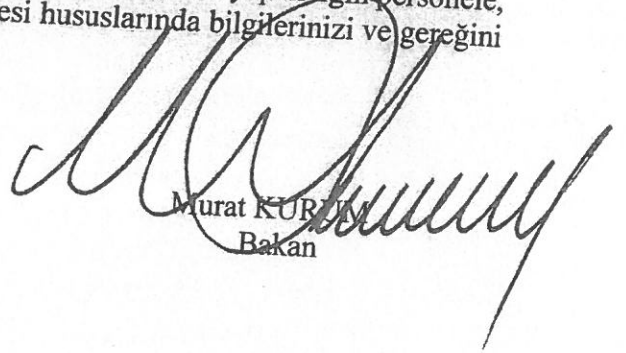 personele,
esi hususlarında bilgilerinizi ve gereğini
Murat KURUM
Bakan